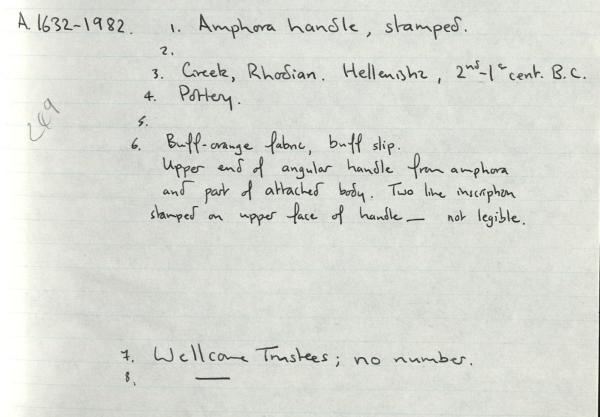 A.1632-1982. 1. Amphora handle, stamped.
2.
3. Greek, Rhodian. Hellenistic, 2nd-1st cent. B.C.
4. Pottery.
5.
6. Buff-orange fabric, buff slip.
Upper end of angular handle from amphora
and part of attached body. Two line inscription
stamped on upper face of handle — not legible.
7. Wellcome Trustees; no number.
8. —